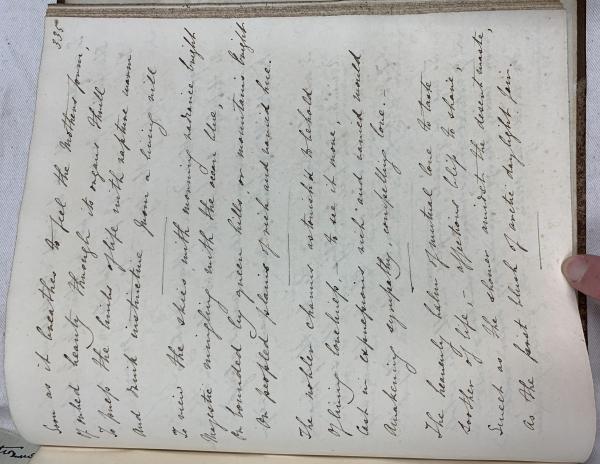 335
Soon as it breathes to feel the Mothers form,
Of orbed beauty through its organs thrill
To press the limbs of life with rapture warm
And drink instinctive from a living rill
To view the skies with morning radiance bright
Majestic mingling with the ocean blue,
Or bounded by green hills or mountains bright
Or peopled plains of rich and varied hue.
The nobler charms astonish'd to behold
Of living loveliness, – to see it move,
Cast in expressions rich and varied mould
Awakening sympathy, compelling love. –
The heavenly balm of mutual love to taste
Soother of life, affections bliss to share,
Sweet as the shower amidst the desert waste,
As the first blush of arctic daylight fair.